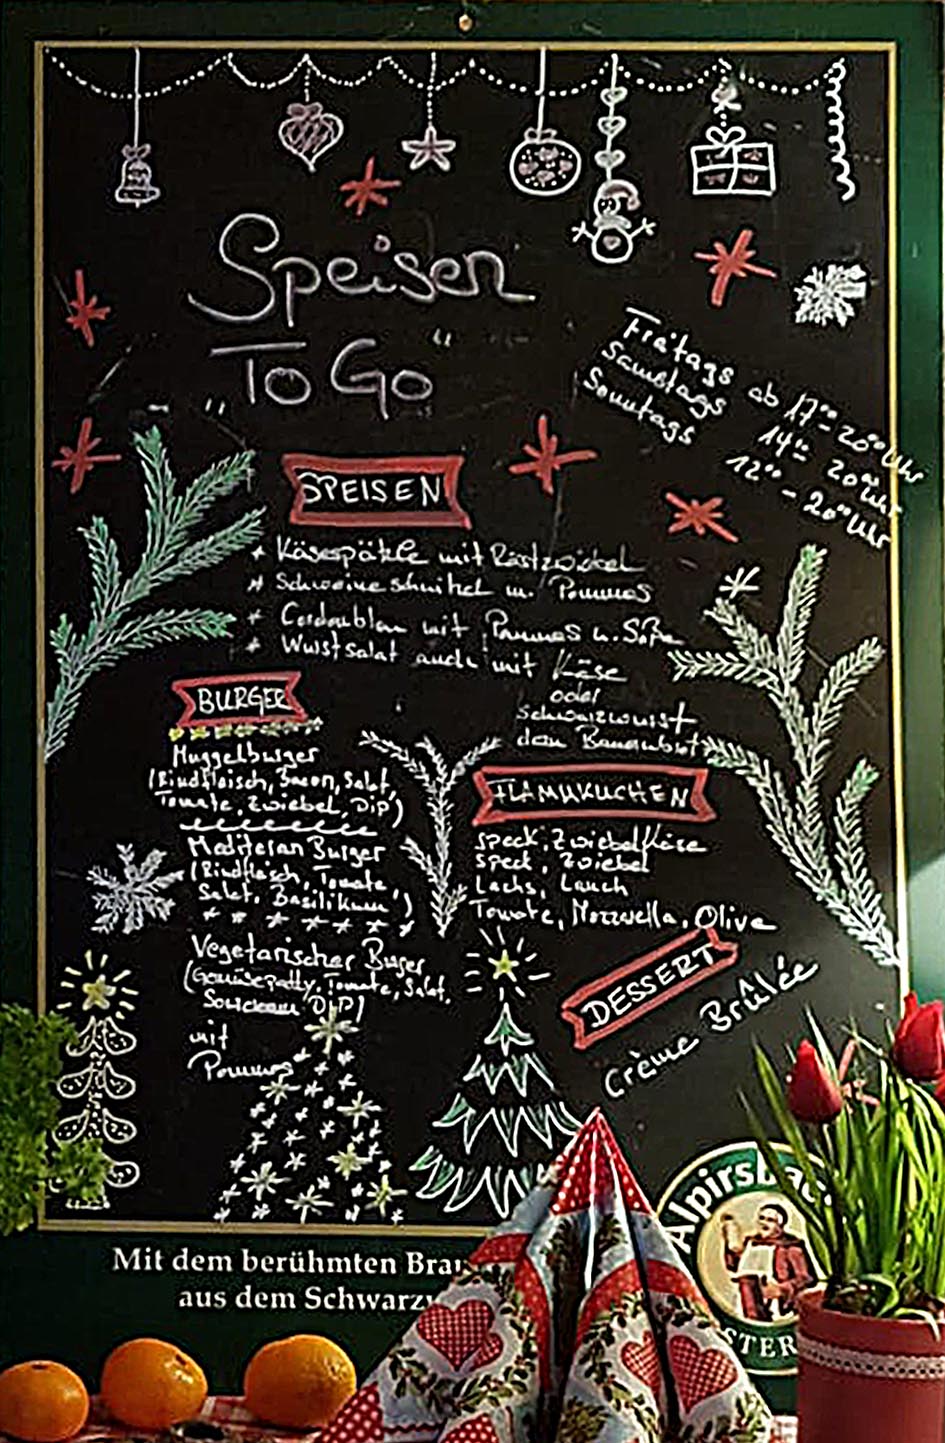 Speisen
"To Go"
Freitags ab 17⁰⁰ - 20⁰⁰ Uhr
Samstags 14⁰⁰ - 20⁰⁰ Uhr
Sonntags 12⁰⁰ - 20⁰⁰ Uhr
SPEISEN
* Käsespätzle mit Röstzwiebel
* Schweineschnitzel m. Pommes
* Cordonbleu mit Pommes u. Soße
* Wurstsalat auch mit Käse
oder
Schwarzwurst
dazu Bauernbrot
BURGER
Muggelburger
(Rindfleisch, Bacon, Salat,
Tomate, Zwiebel, Dip)
Mediteran Burger
(Rindfleisch, Tomate,
Salat, Basilikum)
Vegetarischer Burger
(Gemüsepatty, Tomate, Salat,
Sourcream Dip)
mit
Pommes
FLAMMKUCHEN
Speck, Zwiebel, Käse
Speck, Zwiebel
Lachs, Lauch
Tomate, Mozzarella, Olive
DESSERT
Crème Brûlée
Mit dem berühmten Brau
aus dem Schwarzw
Alpirsbac
STER